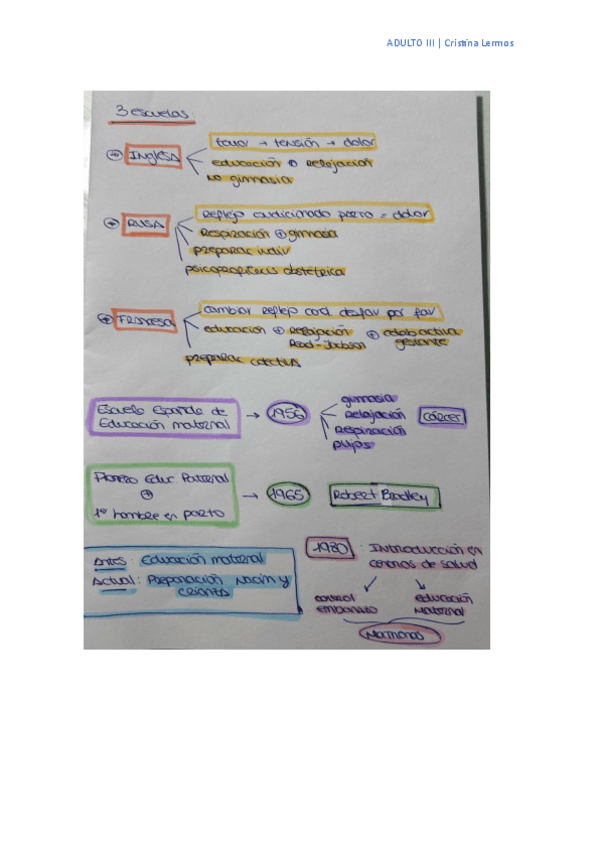 ADULTO III | Cristina Lermos
3 escuelas:
INGLESA
temor → tensión → dolor
educación ⊕ relajación
NO gimnasia
RUSA
Reflejo condicionado parto = dolor
Respiración ⊕ gimnasia
preparac indiv
psicoprofilaxis obstétrica
FRANCESA
cambiar reflejo cond desfav por fav
educación ⊕ relajación ⊕ colab activa
Read - Jacobson gestante
preparac colectiva
Escuela Española de
Educación maternal → 1956
gimnasia
Relajación
Respiración
pujos
CÁRCER
Pionero Educ. Paternal
⊕
1º hombre en parto → 1965
Robert Bradley
Antes: Educación maternal
Actual: Preparación Nacim y
crianza
1980: Introducción en
centros de salud
control
embarazo
educación
maternal
Matronas